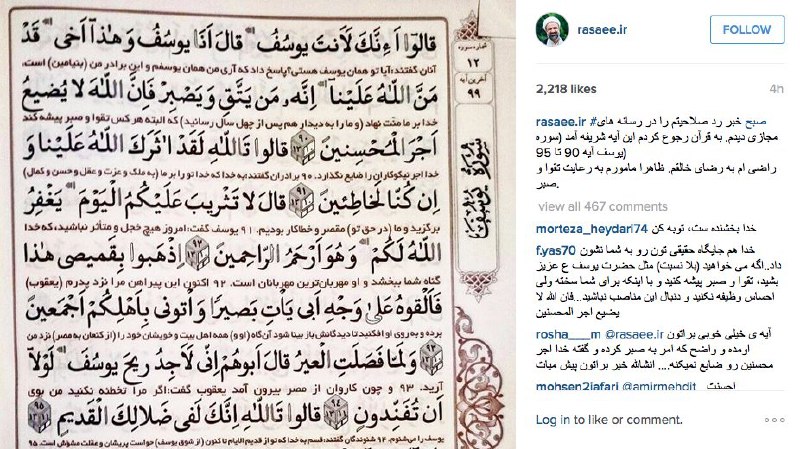 قالوا اءنك لانت يوسف قال انا يوسف وهذا اخى قد
آنان گفتند: آیا تو همان یوسف هستی؟ پاسخ داد که آری من همان یوسفم و این برادر من (بنیامین) است،
من الله علينا انه من يتق ويصبر فان الله لا يضيع
خدا بر ما منت نهاد (و ما را به دیدار هم پس از چهل سال رسانید) که البته هر کس تقوا و صبر پیشه کند
اجر المحسنين ۹۰ قالوا تالله لقد اثرك الله علينا و
خدا اجر نیکوکاران را ضایع نگذارد. ۹۰ برادران گفتند: به خدا که خدا تو را بر ما (به ملک و عزت و عقل و حسن و کمال)
ان كنا لخاطئين ۹۱ قال لا تثريب عليكم اليوم يغفر
برگزید و ما (در حق تو) مقصر و خطاکار بودیم. ۹۱ یوسف گفت: امروز هیچ خجل و متأثر نباشید، که خدا
الله لكم وهو ارحم الراحمين ۹۲ اذهبوا بقميصى هذا
گناه شما ببخشد و او مهربان‌ترین مهربانان است. ۹۲ اکنون این پیراهن مرا نزد پدرم (یعقوب)
فالقوه على وجه ابى يات بصيرا واتونى باهلكم اجمعين
برده و به روی او افکنید تا دیدگانش باز بینا شود آن‌گاه (او و) همه اهل بیت و خویشان خود را (از کنعان به مصر) نزد من
۹۳ ولما فصلت العير قال ابوهم انى لاجد ريح يوسف لولا
آرید. ۹۳ و چون کاروان از مصر بیرون آمد یعقوب گفت: اگر مرا تخطئه نکنید من بوی
ان تفندون ۹۴ قالوا تالله انك لفى ضلالك القديم ۹۵
شماره سوره
۱۲
آخرین آیه
۹۹
سورة يوسف
rasaee.ir
FOLLOW
2,218 likes
4h
rasaee.ir #صبح خبر رد صلاحیتم را در رسانه های
مجازی دیدم. به قرآن رجوع کردم این آیه شریفه آمد (سوره
یوسف آیه 90 تا 95)
راضی ام به رضای خالقم. ظاهرا مامورم به رعایت تقوا و
صبر.
view all 467 comments
morteza_heydari74 خدا بخشنده ست، توبه کن
f.yas70 خدا هم جایگاه حقیقی تون رو به شما نشون
داد..اگه می خواهید (بلا نسبت) مثل حضرت یوسف ع عزیز
بشید، تقوا و صبر پیشه کنید و با اینکه برای شما سخته ولی
احساس وظیفه نکنید و دنبال این مناصب نباشید...فان الله لا
یضیع اجر المحسنین
rosha___m @rasaee.ir آیه ی خیلی خوبی براتون
ارمده و راضح که امر به صبر کرده و گفته خدا اجر
محسنین رو ضایع نمیکنه.... انشالله خبر براتون پیش میات
mohsen2jafari @amirmehdit احسنت
Log in to like or comment.